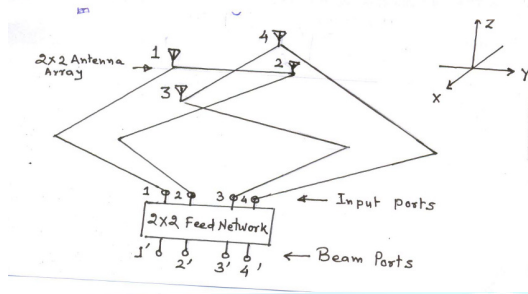 4
1
2x2 Antenna
Array
2
3
Z
Y
X
1 2 3 4
Input ports
2x2 Feed Network
1' 2' 3' 4'
Beam Ports